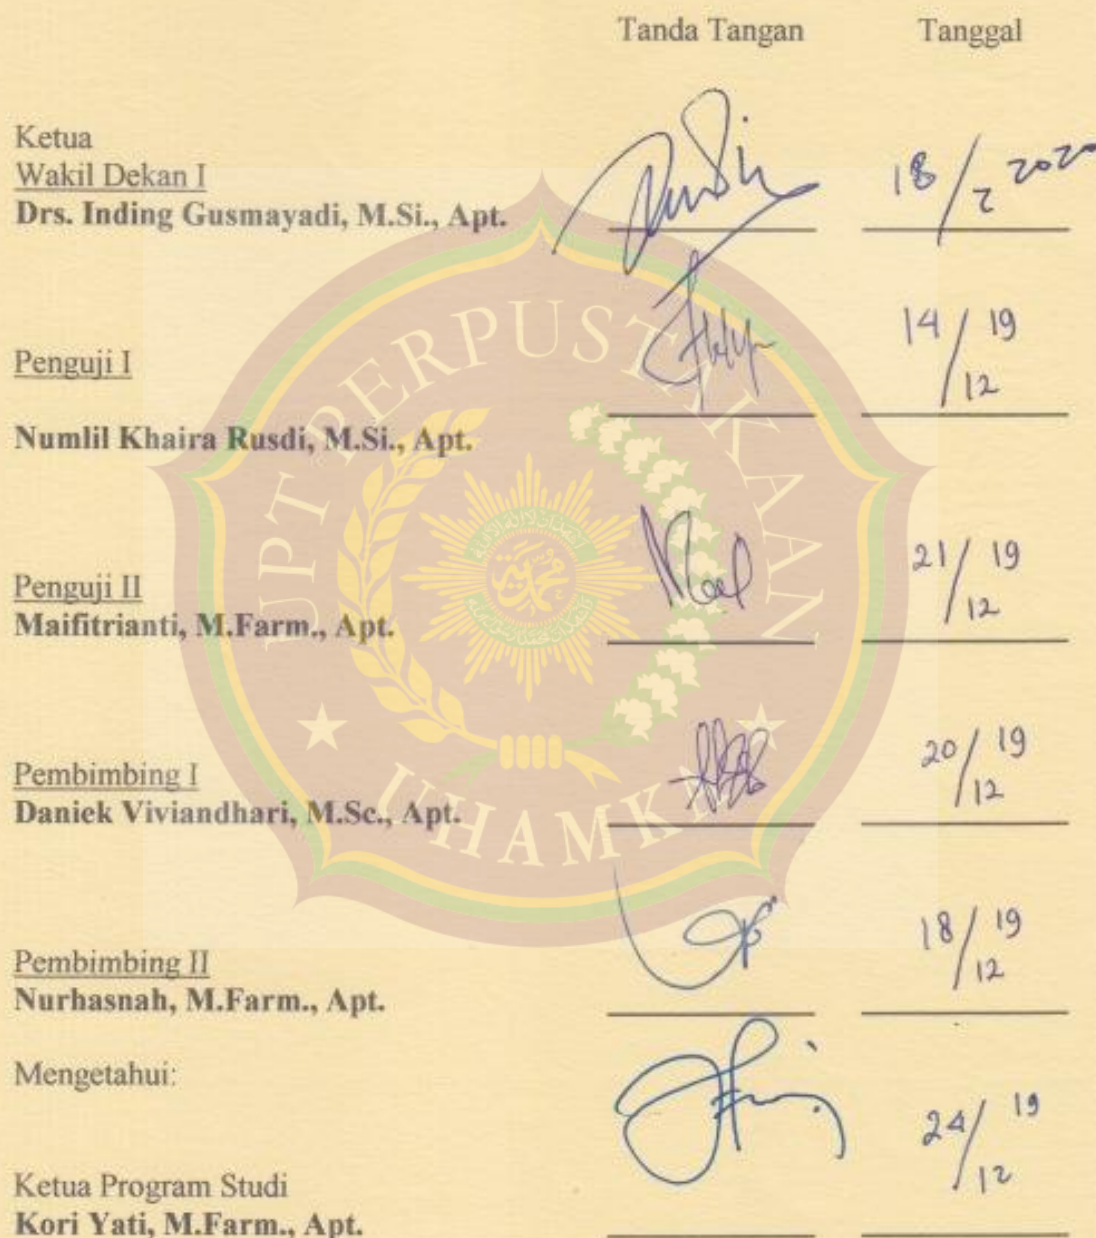 Tanda Tangan Tanggal
Ketua
Wakil Dekan I
Drs. Inding Gusmayadi, M.Si., Apt.
18/2 2020
Penguji I
14/12 19
Numlil Khaira Rusdi, M.Si., Apt.
Penguji II
Maifitrianti, M.Farm., Apt.
21/12 19
Pembimbing I
Daniek Viviandhari, M.Sc., Apt.
20/12 19
Pembimbing II
Nurhasnah, M.Farm., Apt.
18/12 19
Mengetahui:
Ketua Program Studi
Kori Yati, M.Farm., Apt.
24/12 19
UPT PERPUSTAKAAN
UHAMKA